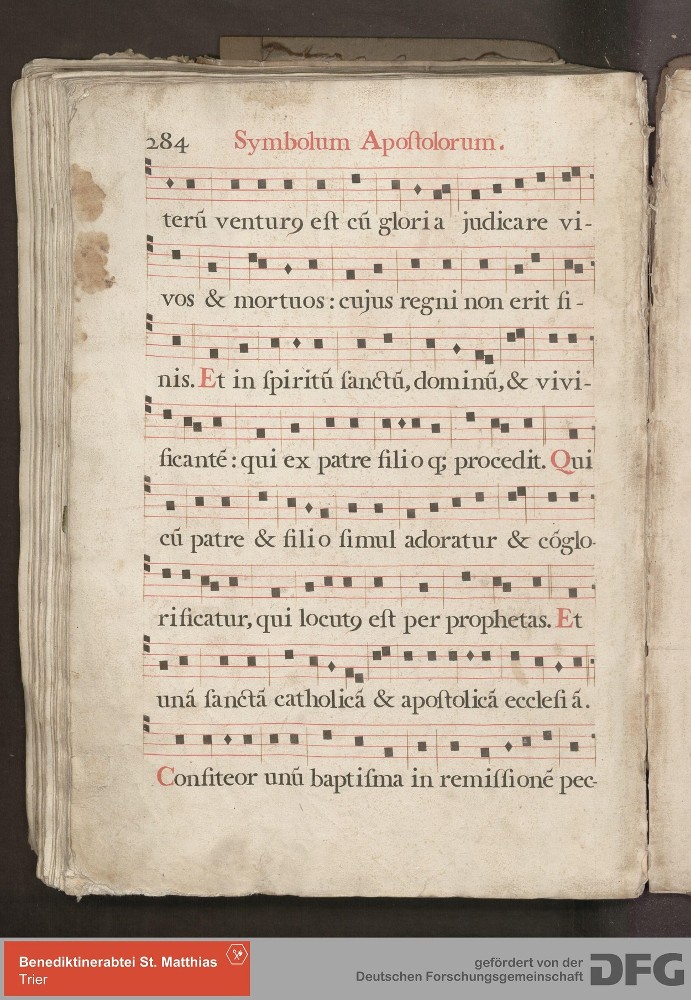 284 Symbolum Apoſtolorum.
terũ venturꝯ eſt cũ gloria judicare vi-
vos & mortuos: cujus regni non erit fi-
nis. Et in ſpiritũ ſanctũ, dominũ, & vivi-
ficantẽ: qui ex patre filio q; procedit. Qui
cũ patre & filio ſimul adoratur & cõglo-
rificatur, qui locutꝯ eſt per prophetas. Et
unã ſanctã catholicã & apoſtolicã eccleſiã.
Confiteor unũ baptiſma in remiſſionẽ pec-
Benediktinerabtei St. Matthias
Trier
gefördert von der
Deutschen Forschungsgemeinschaft
DFG